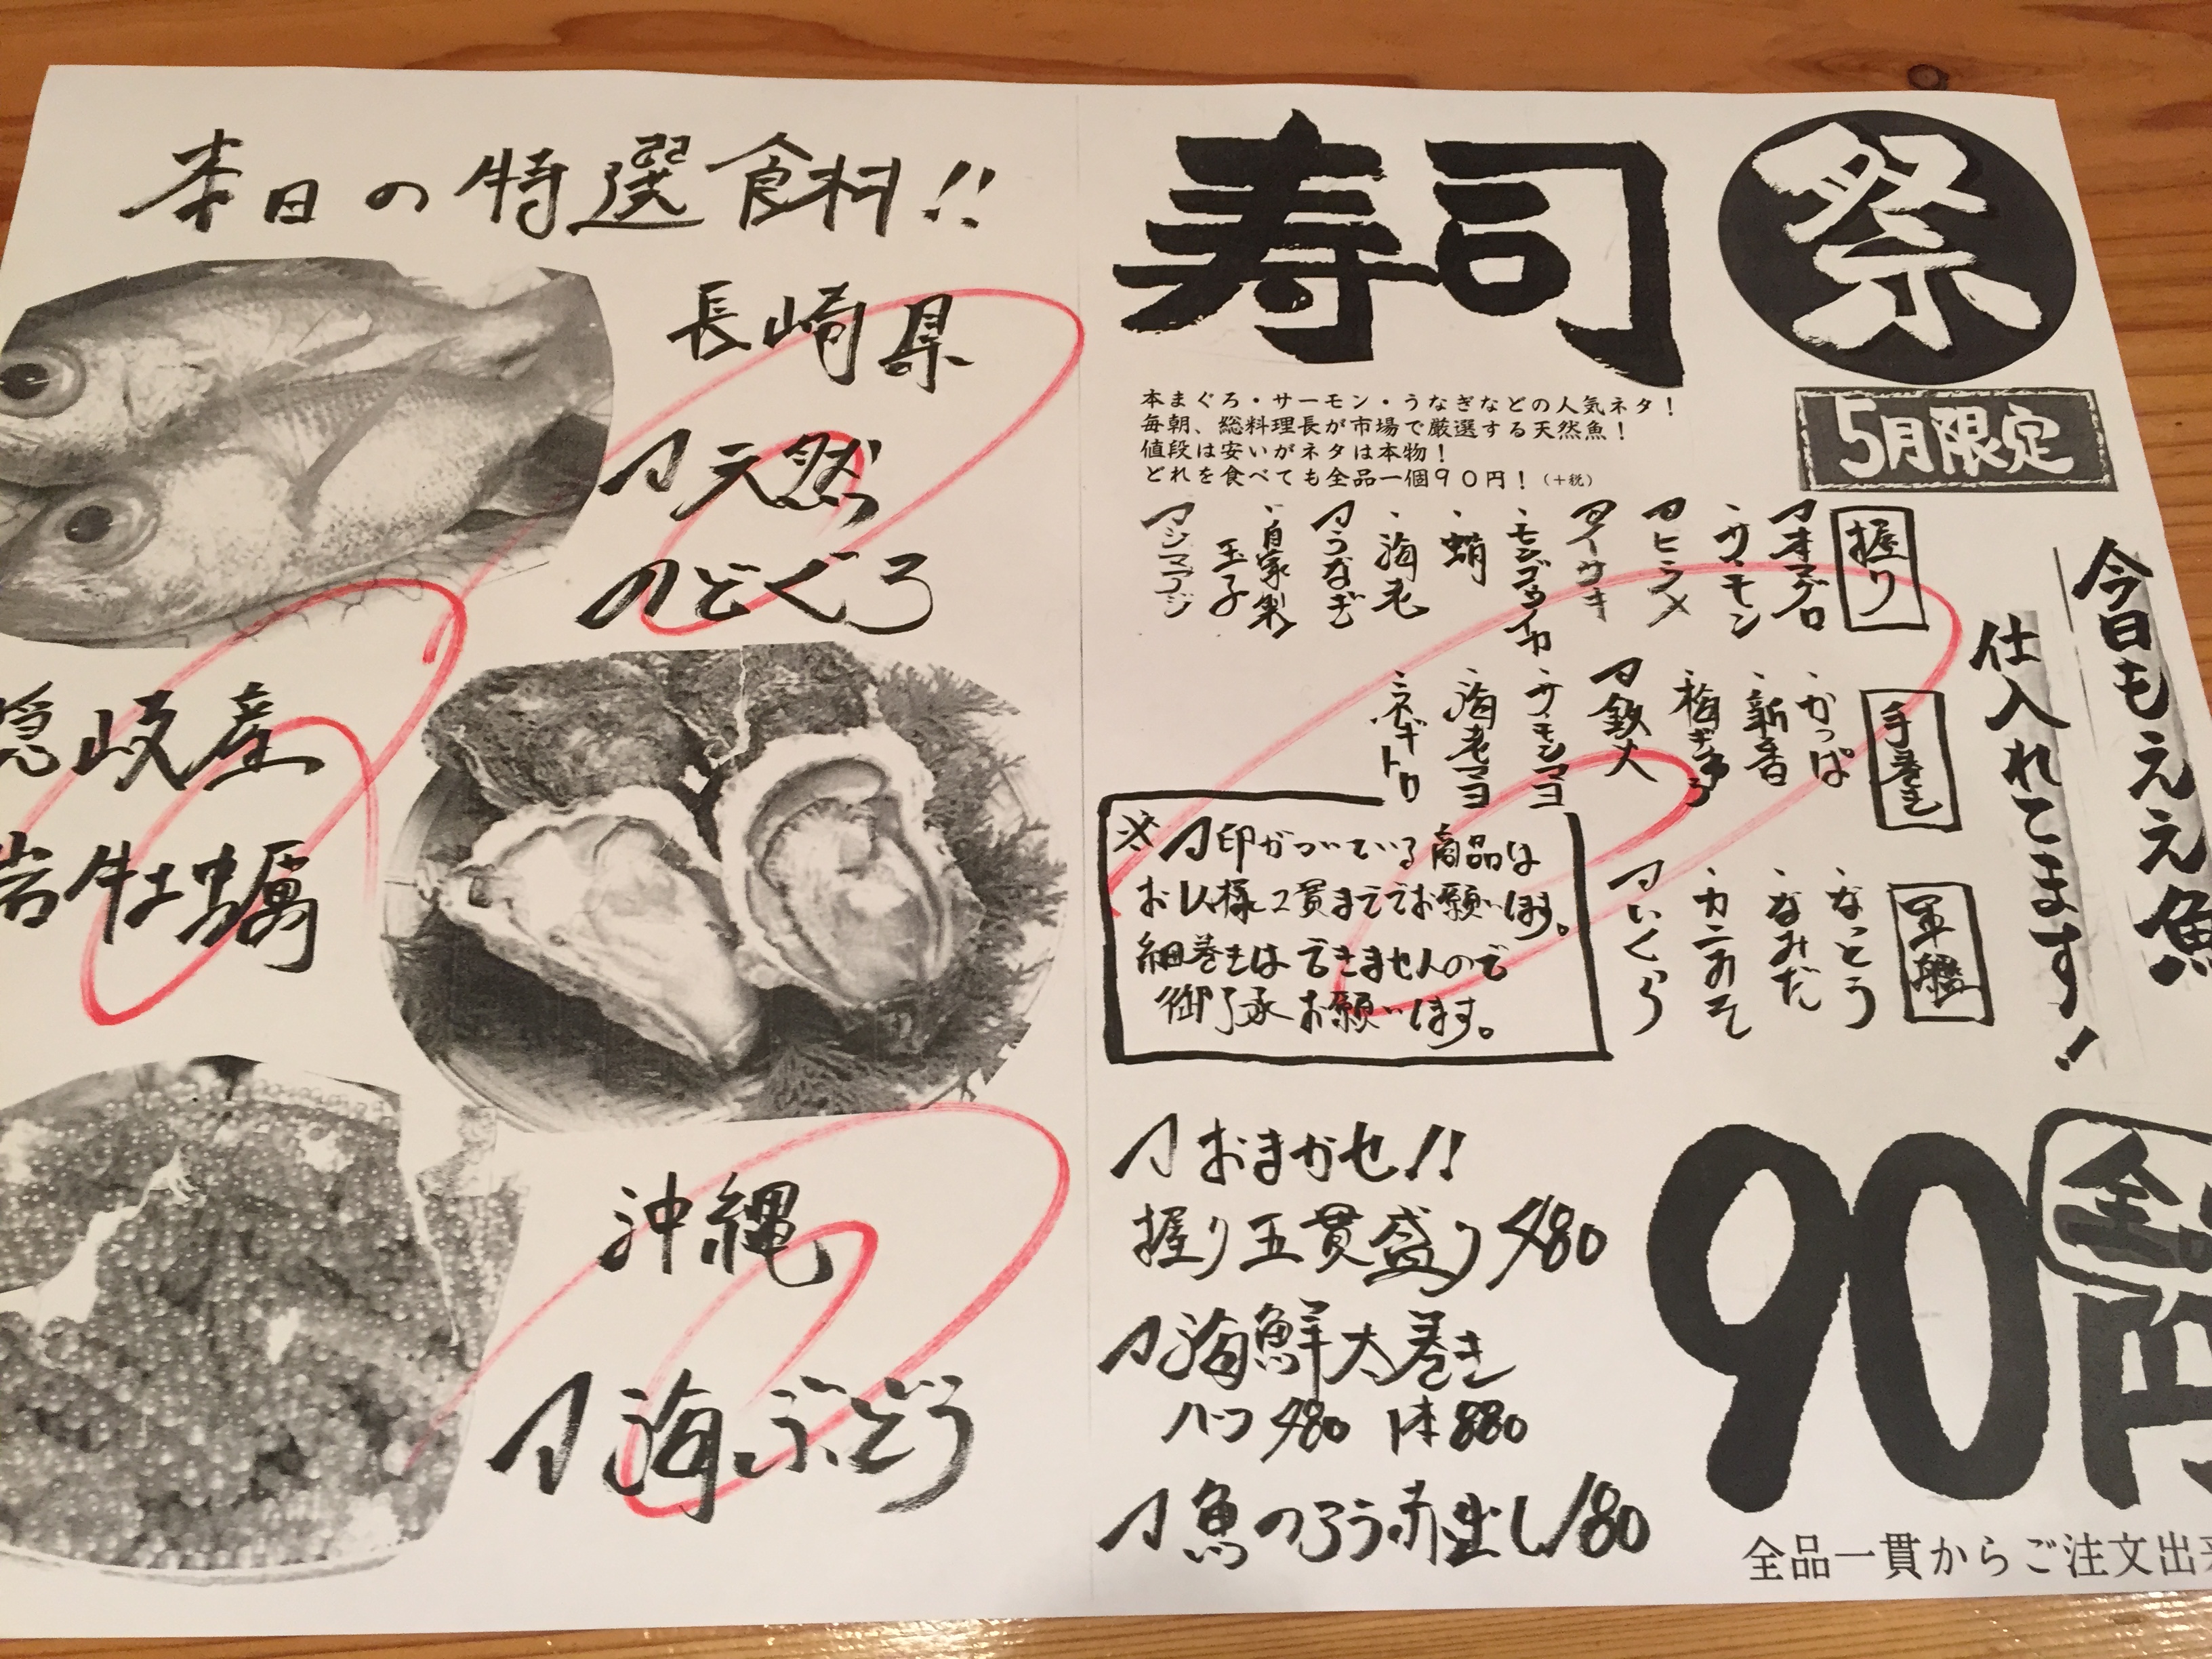 本日の特選食料!!
長崎県
天然
のどぐろ
隠岐産
岩牡蠣
沖縄
海ぶどう
寿司
祭
5月限定
本まぐろ・サーモン・うなぎなどの人気ネタ!
毎朝、総料理長が市場で厳選する天然魚!
値段は安いがネタは本物!
どれを食べても全品一個90円!(+税)
今日もええ魚
仕入れてこます!
握り
本マグロ
・サーモン
ヒラメ
イサキ
・モンゴウイカ
・蛸
・海老
うなぎ
・自家製
玉子
シマアジ
手巻き
・かっぱ
・新香
鉄火
・サーモンマヨ
・海老マヨ
・ネギトロ
軍艦
・なっとう
・なみだ
・カニみそ
いくら
※ 印がついている商品は
お1人様2貫まででお願いします。
細巻きはできませんので
御了承お願いします。
おまかせ!!
握り五貫盛り480
海鮮太巻き
ハーフ480 1本880
魚のあら赤出し180
90円
全品
全品一貫からご注文出来